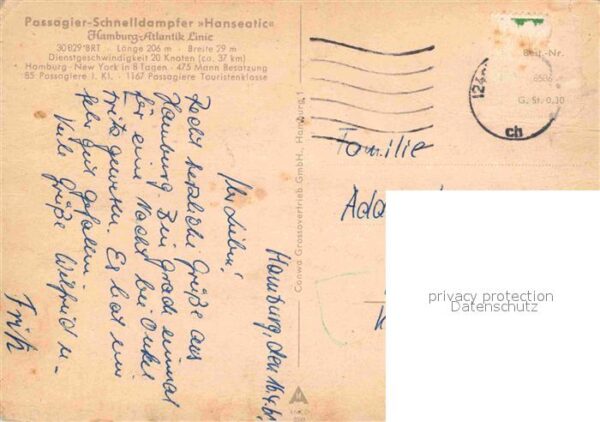 Passagier-Schnelldampfer »Hanseatic«
Hamburg-Atlantik Linie
30 829 BRT · Länge 206 m · Breite 29 m
Dienstgeschwindigkeit 20 Knoten (ca. 37 km)
Hamburg - New York in 8 Tagen · 475 Mann Besatzung
85 Passagiere I. Kl. · 1167 Passagiere Touristenklasse
Hamburg, den 16.4.61
Ihr Lieben!
Recht herzliche Grüße aus
Hamburg. Bin grade einmal
für eine Nacht bei Onkel
Fritz gewesen. Es hat mir
sehr gut gefallen.
Viele Grüße Wilfried u.
Fritz
Conwa Grossovertrieb GmbH., Hamburg 1
Best.-Nr.
G. St. 0.10
ch
Familie
privacy protection
Datenschutz